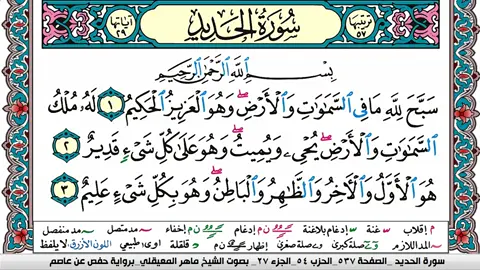 ترتيبها ٥٧ سُورَةُ الحَدِيدِ آياتها ٢٩
بِسْمِ اللَّهِ الرَّحْمَٰنِ الرَّحِيمِ
سَبَّحَ لِلَّهِ مَا فِي السَّمَاوَاتِ وَالْأَرْضِ ۖ وَهُوَ الْعَزِيزُ الْحَكِيمُ ١ لَهُ مُلْكُ
السَّمَاوَاتِ وَالْأَرْضِ ۖ يُحْيِي وَيُمِيتُ ۖ وَهُوَ عَلَىٰ كُلِّ شَيْءٍ قَدِيرٌ ٢
هُوَ الْأَوَّلُ وَالْآخِرُ وَالظَّاهِرُ وَالْبَاطِنُ ۖ وَهُوَ بِكُلِّ شَيْءٍ عَلِيمٌ ٣
م إقلاب س غنة إدغام بلاغنة ن م إدغام ن م إخفاء مد متصل مد منفصل
المد اللازم صلة كبرى صلة صغرى إظهار ن م قلقلة اوى: طبيعي اللون الأزرق: لا يلفظ
سورة الحديد _الصفحة ٥٣٧_الحزب ٥٤_الجزء ٢٧_ بصوت الشيخ ماهر المعيقلي_برواية حفص عن عاصم